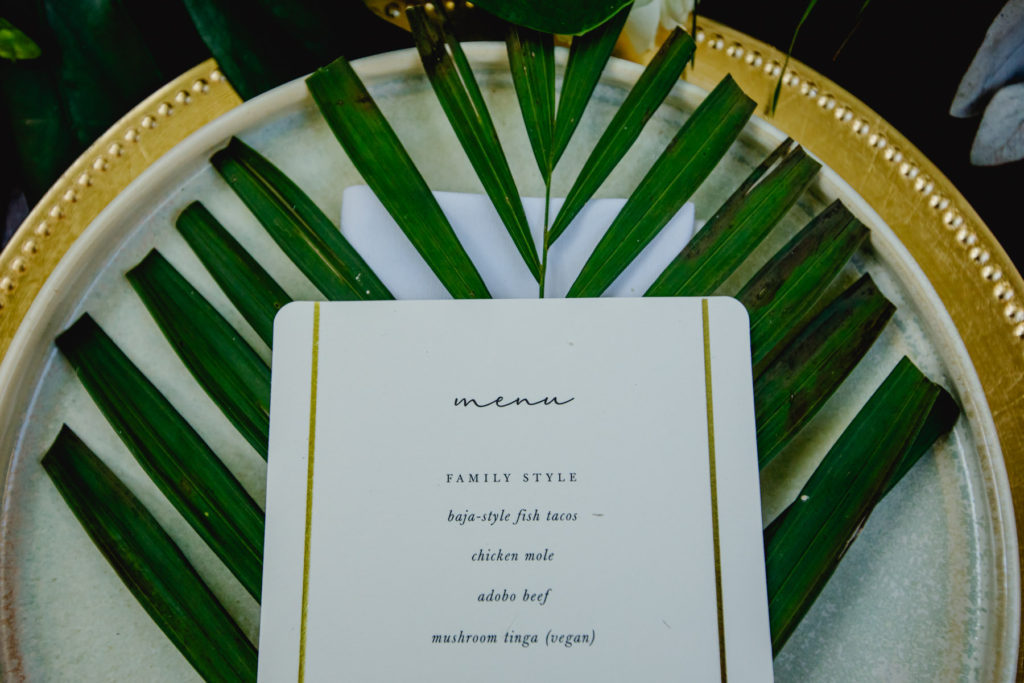 menu
FAMILY STYLE
baja-style fish tacos
chicken mole
adobo beef
mushroom tinga (vegan)